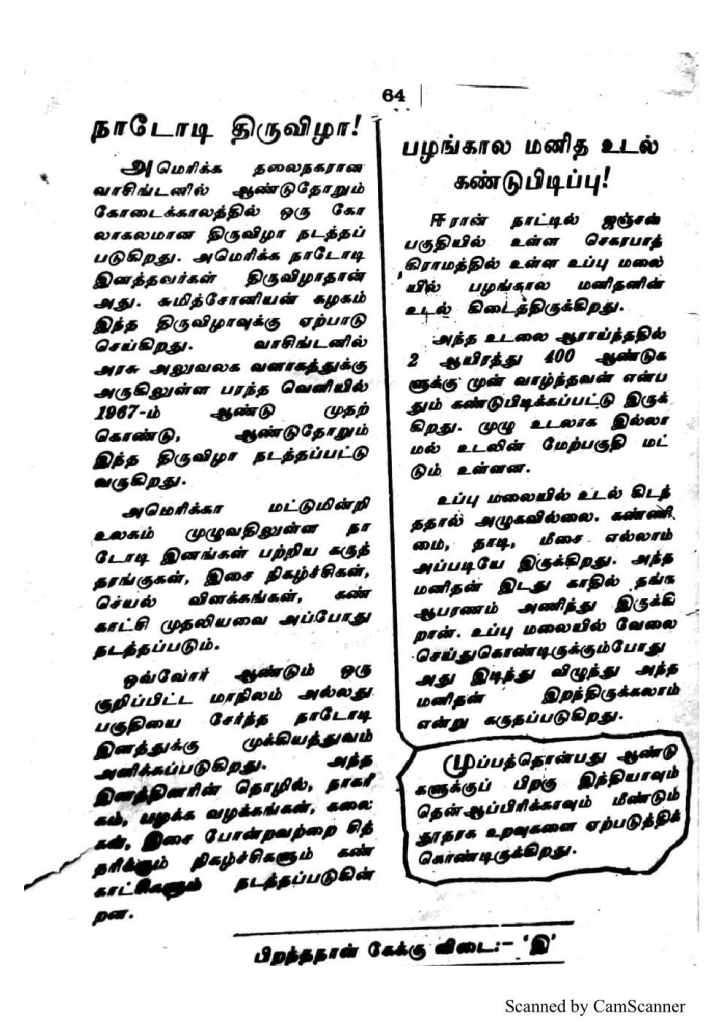 64
நாடோடி திருவிழா!
அமெரிக்க தலைநகரான
வாசிங்டனில் ஆண்டுதோறும்
கோடைக்காலத்தில் ஒரு கோ
லாகலமான திருவிழா நடத்தப்
படுகிறது. அமெரிக்க நாடோடி
இனத்தவர்கள் திருவிழாதான்
அது. சுமித்சோனியன் கழகம்
இந்த திருவிழாவுக்கு ஏற்பாடு
செய்கிறது. வாசிங்டனில்
அரசு அலுவலக வளாகத்துக்கு
அருகிலுள்ள பரந்த வெளியில்
1967-ம் ஆண்டு முதற்
கொண்டு, ஆண்டுதோறும்
இந்த திருவிழா நடத்தப்பட்டு
வருகிறது.
அமெரிக்கா மட்டுமின்றி
உலகம் முழுவதிலுள்ள நா
டோடி இனங்கள் பற்றிய கருத்
தரங்குகள், இசை நிகழ்ச்சிகள்,
செயல் விளக்கங்கள், கண்
காட்சி முதலியவை அப்போது
நடத்தப்படும்.
ஒவ்வோர் ஆண்டும் ஒரு
குறிப்பிட்ட மாநிலம் அல்லது
பகுதியை சேர்ந்த நாடோடி
இனத்துக்கு முக்கியத்துவம்
அளிக்கப்படுகிறது. அந்த
இனத்தினரின் தொழில், நாகரி
கம், பழக்க வழக்கங்கள், கலை
கள், இசை போன்றவற்றை சித்
தரிக்கும் நிகழ்ச்சிகளும் கண்
காட்சிகளும் நடத்தப்படுகின்
றன.
பழங்கால மனித உடல்
கண்டுபிடிப்பு!
ஈரான் நாட்டில் ஜஞ்சன்
பகுதியில் உள்ள செகராபாத்
கிராமத்தில் உள்ள உப்பு மலை
யில் பழங்கால மனிதனின்
உடல் கிடைத்திருக்கிறது.
அந்த உடலை ஆராய்ந்ததில்
2 ஆயிரத்து 400 ஆண்டுக
ளுக்கு முன் வாழ்ந்தவன் என்ப
தும் கண்டுபிடிக்கப்பட்டு இருக்
கிறது. முழு உடலாக இல்லா
மல் உடலின் மேற்பகுதி மட்
டும் உள்ளன.
உப்பு மலையில் உடல் கிடந்
ததால் அழுகவில்லை. கண்ணி
மை, தாடி, மீசை எல்லாம்
அப்படியே இருக்கிறது. அந்த
மனிதன் இடது காதில் தங்க
ஆபரணம் அணிந்து இருக்கி
றான். உப்பு மலையில் வேலை
செய்துகொண்டிருக்கும்போது
அது இடிந்து விழுந்து அந்த
மனிதன் இறந்திருக்கலாம்
என்று கருதப்படுகிறது.
முப்பத்தொன்பது ஆண்டு
களுக்குப் பிறகு இந்தியாவும்
தென்ஆப்பிரிக்காவும் மீண்டும்
தூதரக உறவுகளை ஏற்படுத்திக்
கொண்டிருக்கிறது.
பிறந்தநாள் கேக்கு விடை:- 'இ'
Scanned by CamScanner